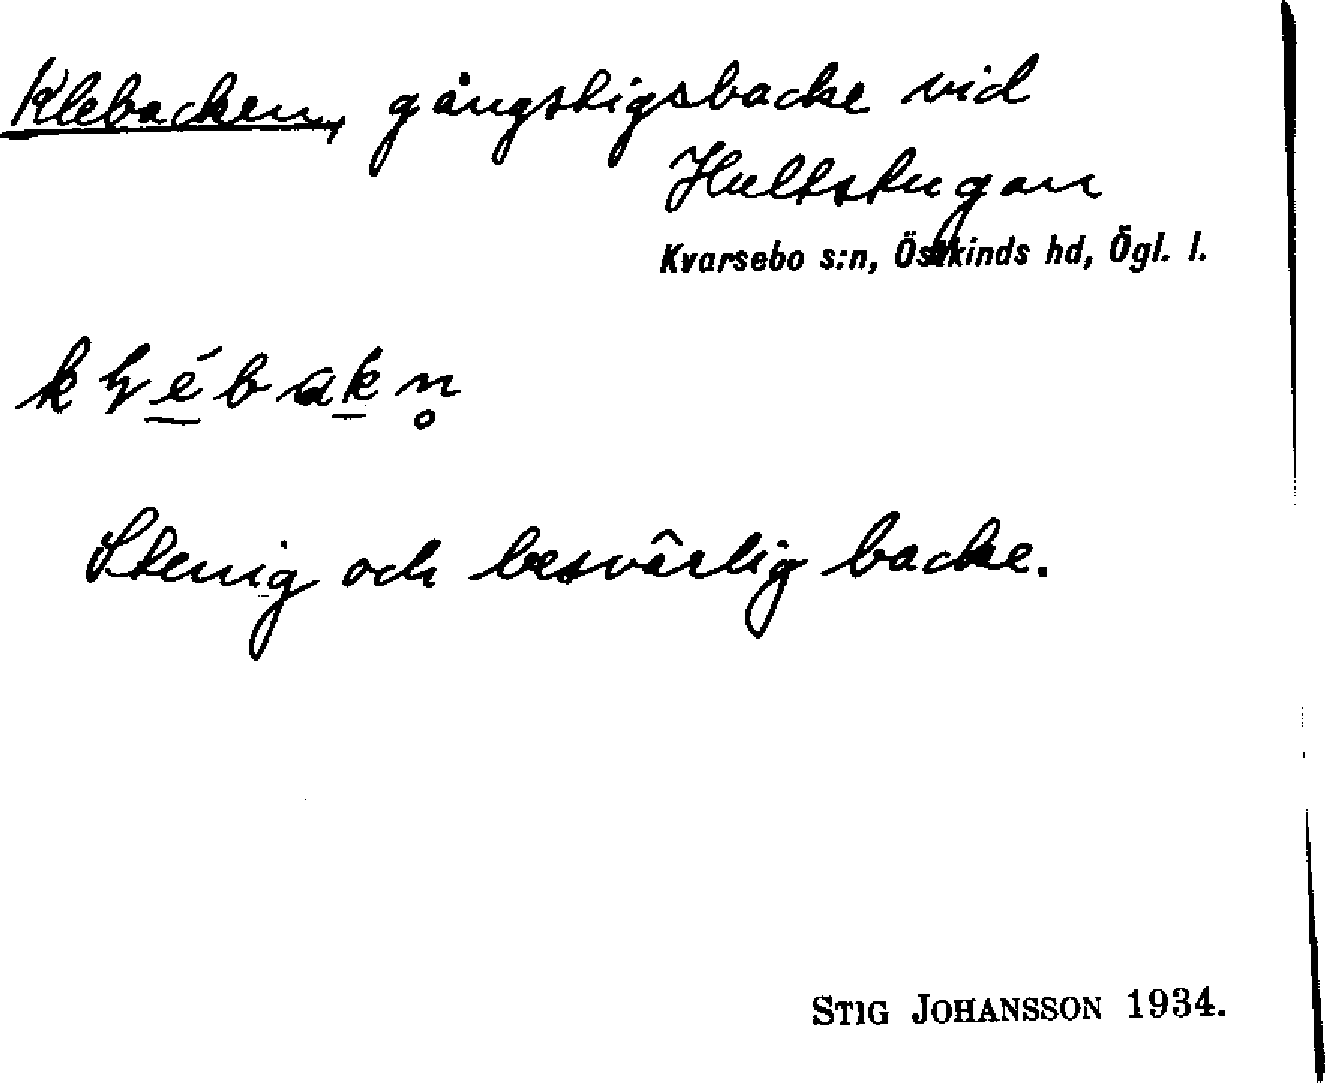 Klebacken, gångstigsbacke vid
Hultstugan
Kvarsebo s:n, Östkinds hd, Ögl. l.
kɬébakn̥
Stenig och besvärlig backe.
STIG JOHANSSON 1934.